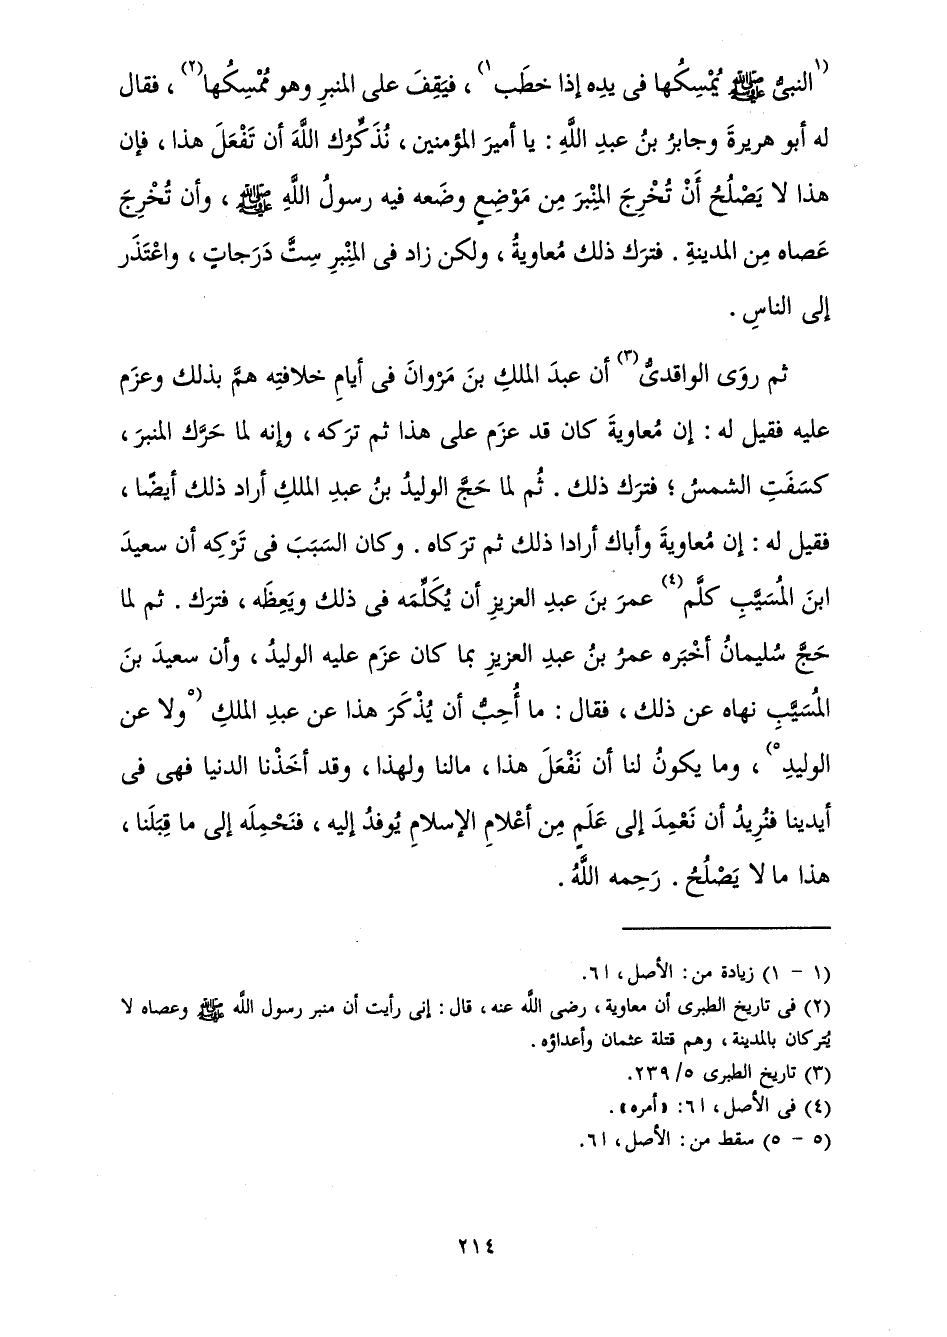 (١النبىُّ ﷺ يُمْسِكُها فى يدِه إذا خطَب١) ، فيَقِفَ على المنبرِ وهو مُمْسِكُها(٢) ، فقال
له أبو هريرةَ وجابرُ بنُ عبدِ اللَّهِ : يا أميرَ المؤمنين ، نُذَكِّرُك اللَّهَ أن تَفْعَلَ هذا ، فإن
هذا لا يَصْلُحُ أَنْ تُخْرِجَ المِنْبرَ مِن مَوْضِعٍ وضَعه فيه رسولُ اللَّهِ ﷺ ، وأن تُخْرِجَ
عَصاه مِن المدينةِ . فترَك ذلك مُعاويةُ ، ولكن زاد فى المِنْبرِ سِتَّ دَرَجاتٍ ، واعْتَذَر
إلى الناسِ .
ثم روَى الواقدىُّ(٣) أن عبدَ الملكِ بنَ مَرْوانَ فى أيامِ خلافتِه همَّ بذلك وعزَم
عليه فقيل له : إن مُعاويةَ كان قد عزَم على هذا ثم ترَكه ، وإنه لما حَرَّك المنبرَ ،
كسَفَتِ الشمسُ ؛ فترَك ذلك . ثُم لما حَجَّ الوليدُ بنُ عبدِ الملكِ أراد ذلك أيضًا ،
فقيل له : إن مُعاويةَ وأباك أرادا ذلك ثم ترَكاه . وكان السَبَبَ فى تَرْكِه أن سعيدَ
ابنَ المُسَيَّبِ كلَّم(٤) عمرَ بنَ عبدِ العزيزِ أن يُكَلِّمَه فى ذلك ويَعِظَه ، فترَك . ثم لما
حَجَّ سُليمانُ أخْبَره عمرُ بنُ عبدِ العزيزِ بما كان عزَم عليه الوليدُ ، وأن سعيدَ بنَ
المُسَيَّبِ نهاه عن ذلك ، فقال : ما أُحِبُّ أن يُذْكَرَ هذا عن عبدِ الملكِ (٥ولا عن
الوليدِ٥) ، وما يكونُ لنا أن نَفْعَلَ هذا ، مالنا ولهذا ، وقد أخَذْنا الدنيا فهى فى
أيدينا فنُرِيدُ أن نَعْمِدَ إلى عَلَمٍ مِن أعْلامِ الإسلامِ يُوفدُ إليه ، فنَحْمِلَه إلى ما قِبَلَنا ،
هذا ما لا يَصْلُحُ . رَحِمه اللَّهُ .
(١ - ١) زيادة من : الأصل ، ٦١.
(٢) فى تاريخ الطبرى أن معاوية ، رضى اللَّه عنه ، قال : إنى رأيت أن منبر رسول اللَّه ﷺ وعصاه لا
يُتركان بالمدينة ، وهم قتلة عثمان وأعداؤه .
(٣) تاريخ الطبرى ٥/ ٢٣٩.
(٤) فى الأصل ، ٦١: «أمره» .
(٥ - ٥) سقط من : الأصل ، ٦١.
٢١٤